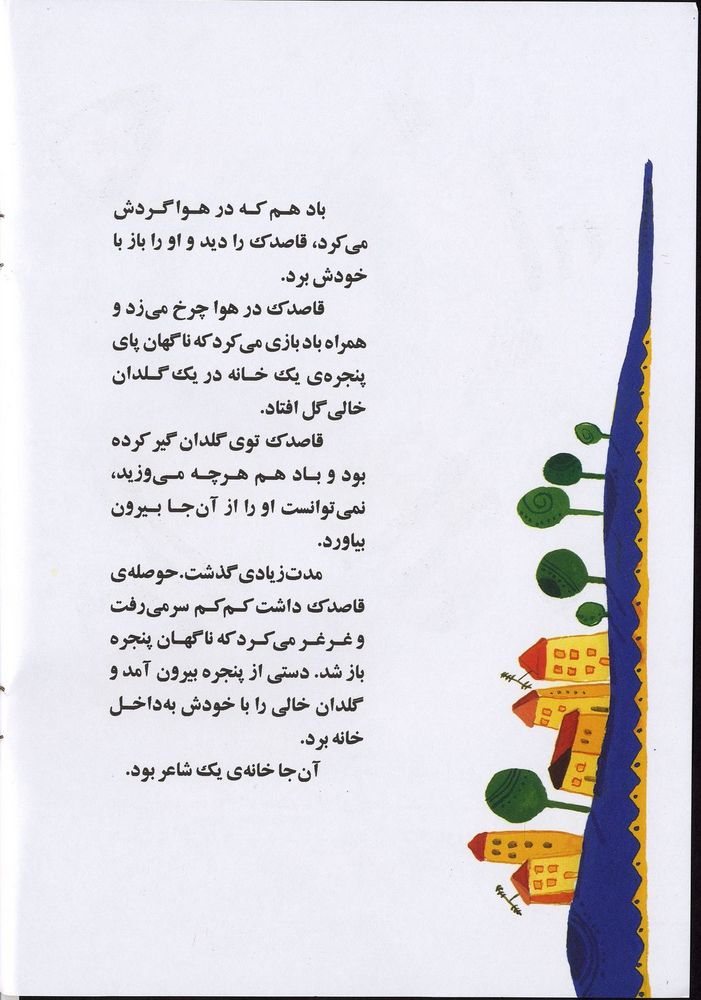 باد هم که در هوا گردش
می‌کرد، قاصدک را دید و او را باز با
خودش برد.
قاصدک در هوا چرخ می‌زد و
همراه باد بازی می‌کرد که ناگهان پای
پنجره‌ی یک خانه در یک گلدان
خالی گل افتاد.
قاصدک توی گلدان گیر کرده
بود و باد هم هرچه می‌وزید،
نمی‌توانست او را از آن‌جا بیرون
بیاورد.
مدت زیادی گذشت. حوصله‌ی
قاصدک داشت کم‌کم سر می‌رفت
و غرغر می‌کرد که ناگهان پنجره
باز شد. دستی از پنجره بیرون آمد و
گلدان خالی را با خودش به‌داخل
خانه برد.
آن‌جا خانه‌ی یک شاعر بود.